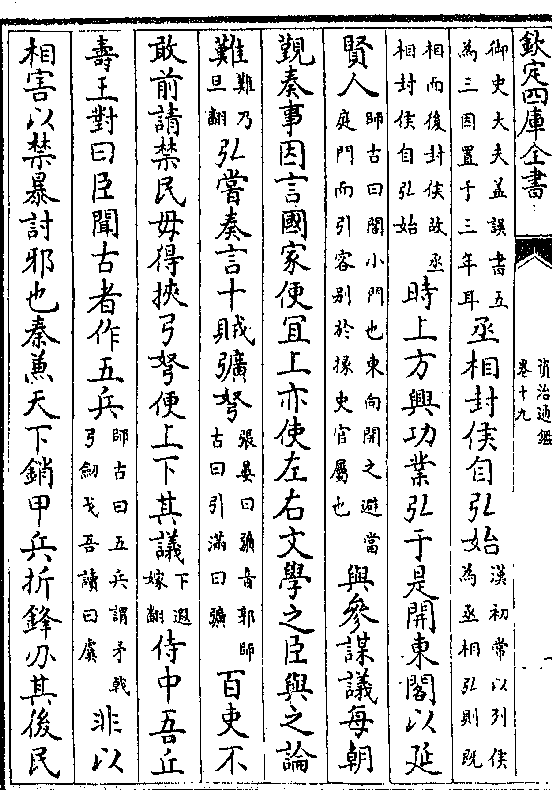 欽定四庫全書
資治通鑑
卷十九
御史大夫蓋誤書五
為三因置于三年耳
丞相封侯自弘始
漢初常以列侯
為丞相弘則既
相而後封侯故丞
相封侯自弘始
時上方興功業弘于是開東閤以延
賢人
師古曰閤小門也東向開之避當
庭門而引客别於掾史官屬也
與參謀議每朝
覲奏事因言國家便宜上亦使左右文學之臣與之論
難
難乃
旦翻
弘嘗奏言十賊彍弩
張晏曰彍音郭師
古曰引滿曰彍
百吏不
敢前請禁民毋得挾弓弩便上下其議
下遐
嫁翻
侍中吾丘
壽王對曰臣聞古者作五兵
師古曰五兵謂矛戟
弓劒戈吾讀曰虞
非以
相害以禁暴討邪也秦兼天下銷甲兵折鋒刃其後民